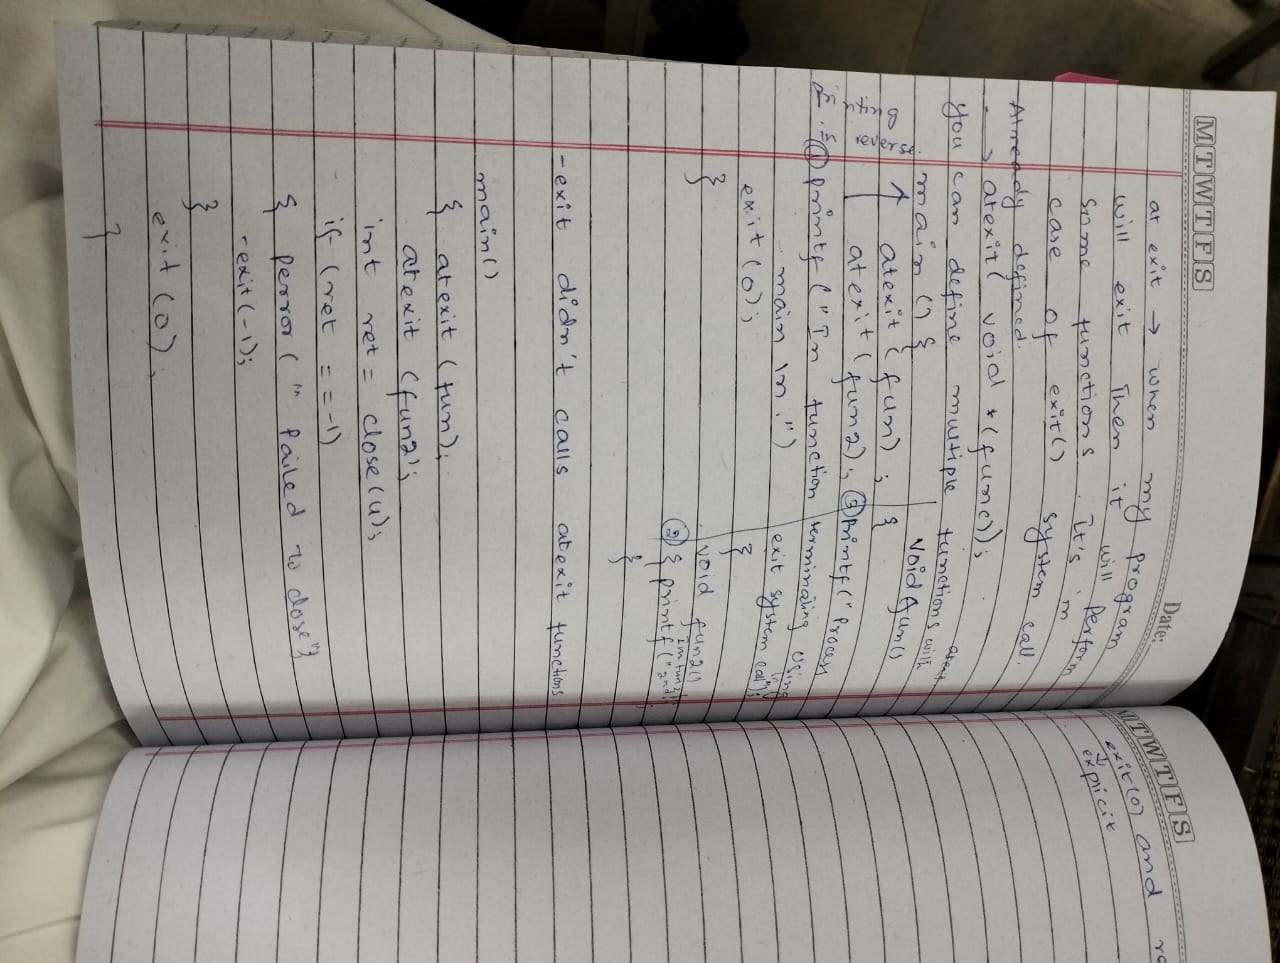 MTWTFS
Date:
at exit → when my program
will exit Then it will Perform
some functions. It's in
case of exit() system call.
Already defined.
→ atexit( void *(func));
You can define multiple functions with atexit
main () {
atexit (fun);
atexit (fun2);
Printing in reverse
① printf ("In function
main \n.")
exit (0);
}
void fun()
{
③ Printf (" Process
terminating using
exit system call \n");
}
void fun2()
② { printf ("Im fun 2nd"
}
-exit didn't calls atexit functions
main()
{ atexit (fun);
atexit (fun2);
int ret = close(4);
if (ret == -1)
{ perror (" failed to close"}
-exit(-1);
}
exit (0);
}
MTWTFS
exit(0) and re
↓
expricit